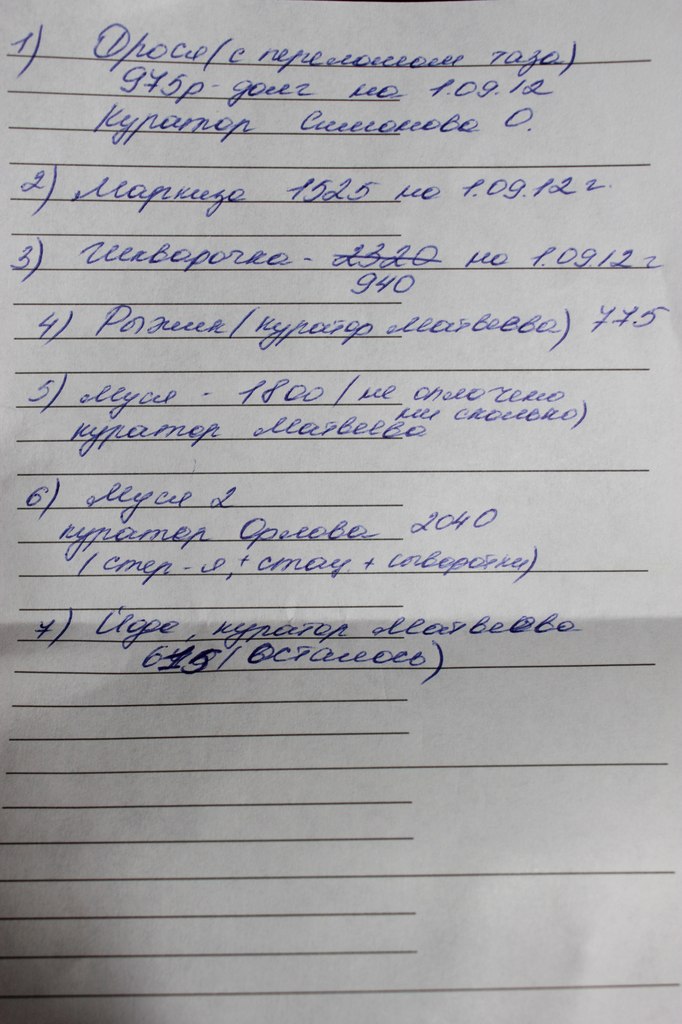 1) Фрося (с переломом таза)
975р - долг на 1.09.12
Куратор Симонова О.
2) Маркиза 1525 на 1.09.12 г.
3) Шкварочка - 2320 на 1.09.12 г
940
4) Рыжик (куратор Матвеева) 775
5) Муся - 1800 (не оплочено
ни сколько)
куратор Матвеева
6) Муся 2
куратор Орлова 2040
(стер-я, + стац + сыворотки)
7) Йода, куратор Матвеева
615 (осталось)